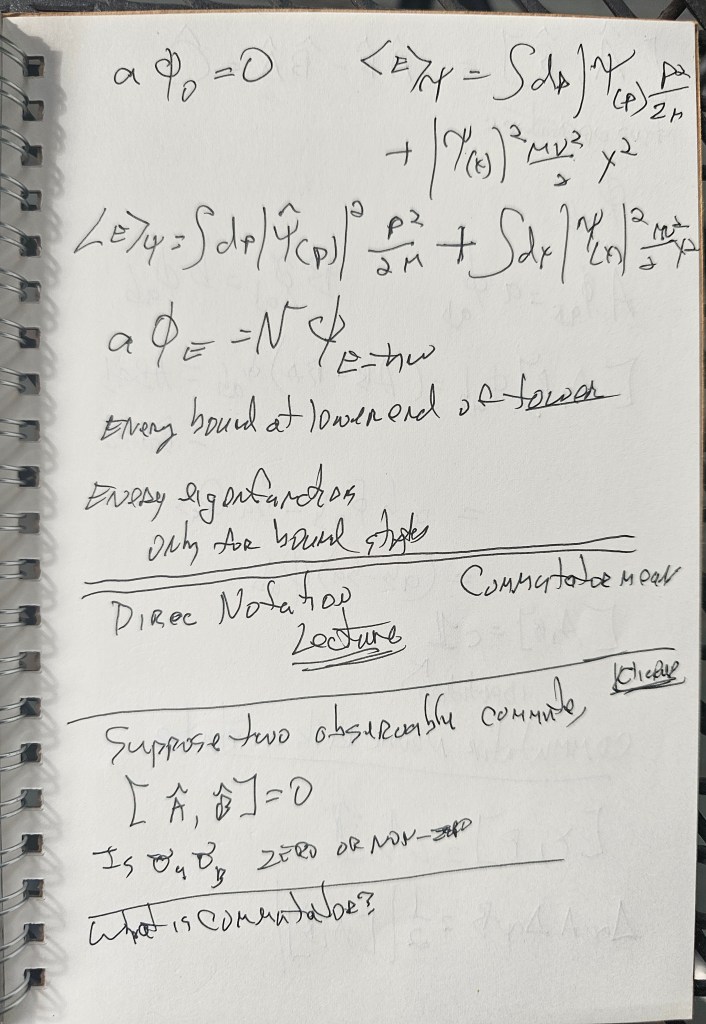 a ϕ₀ = 0
<E>ψ = ∫dp |ψ(p) p²/2M
+ |ψ(x)|² Mν²/2 x²
<E>ψ = ∫dp |ψ̂(p)|² p²/2M + ∫dx |ψ(x)|² Mω²/2 x²
a ϕ_E = N ϕ_E-ħω
Energy bound at lower end of tower
Energy eigenfunctions
only for bound states
Direc Notation
Lecture
Commutator mean
Suppose two observable commute,
[Â, B̂] = 0
Is σ_A σ_B ZERO OR NON-ZERO
What is Commutator?